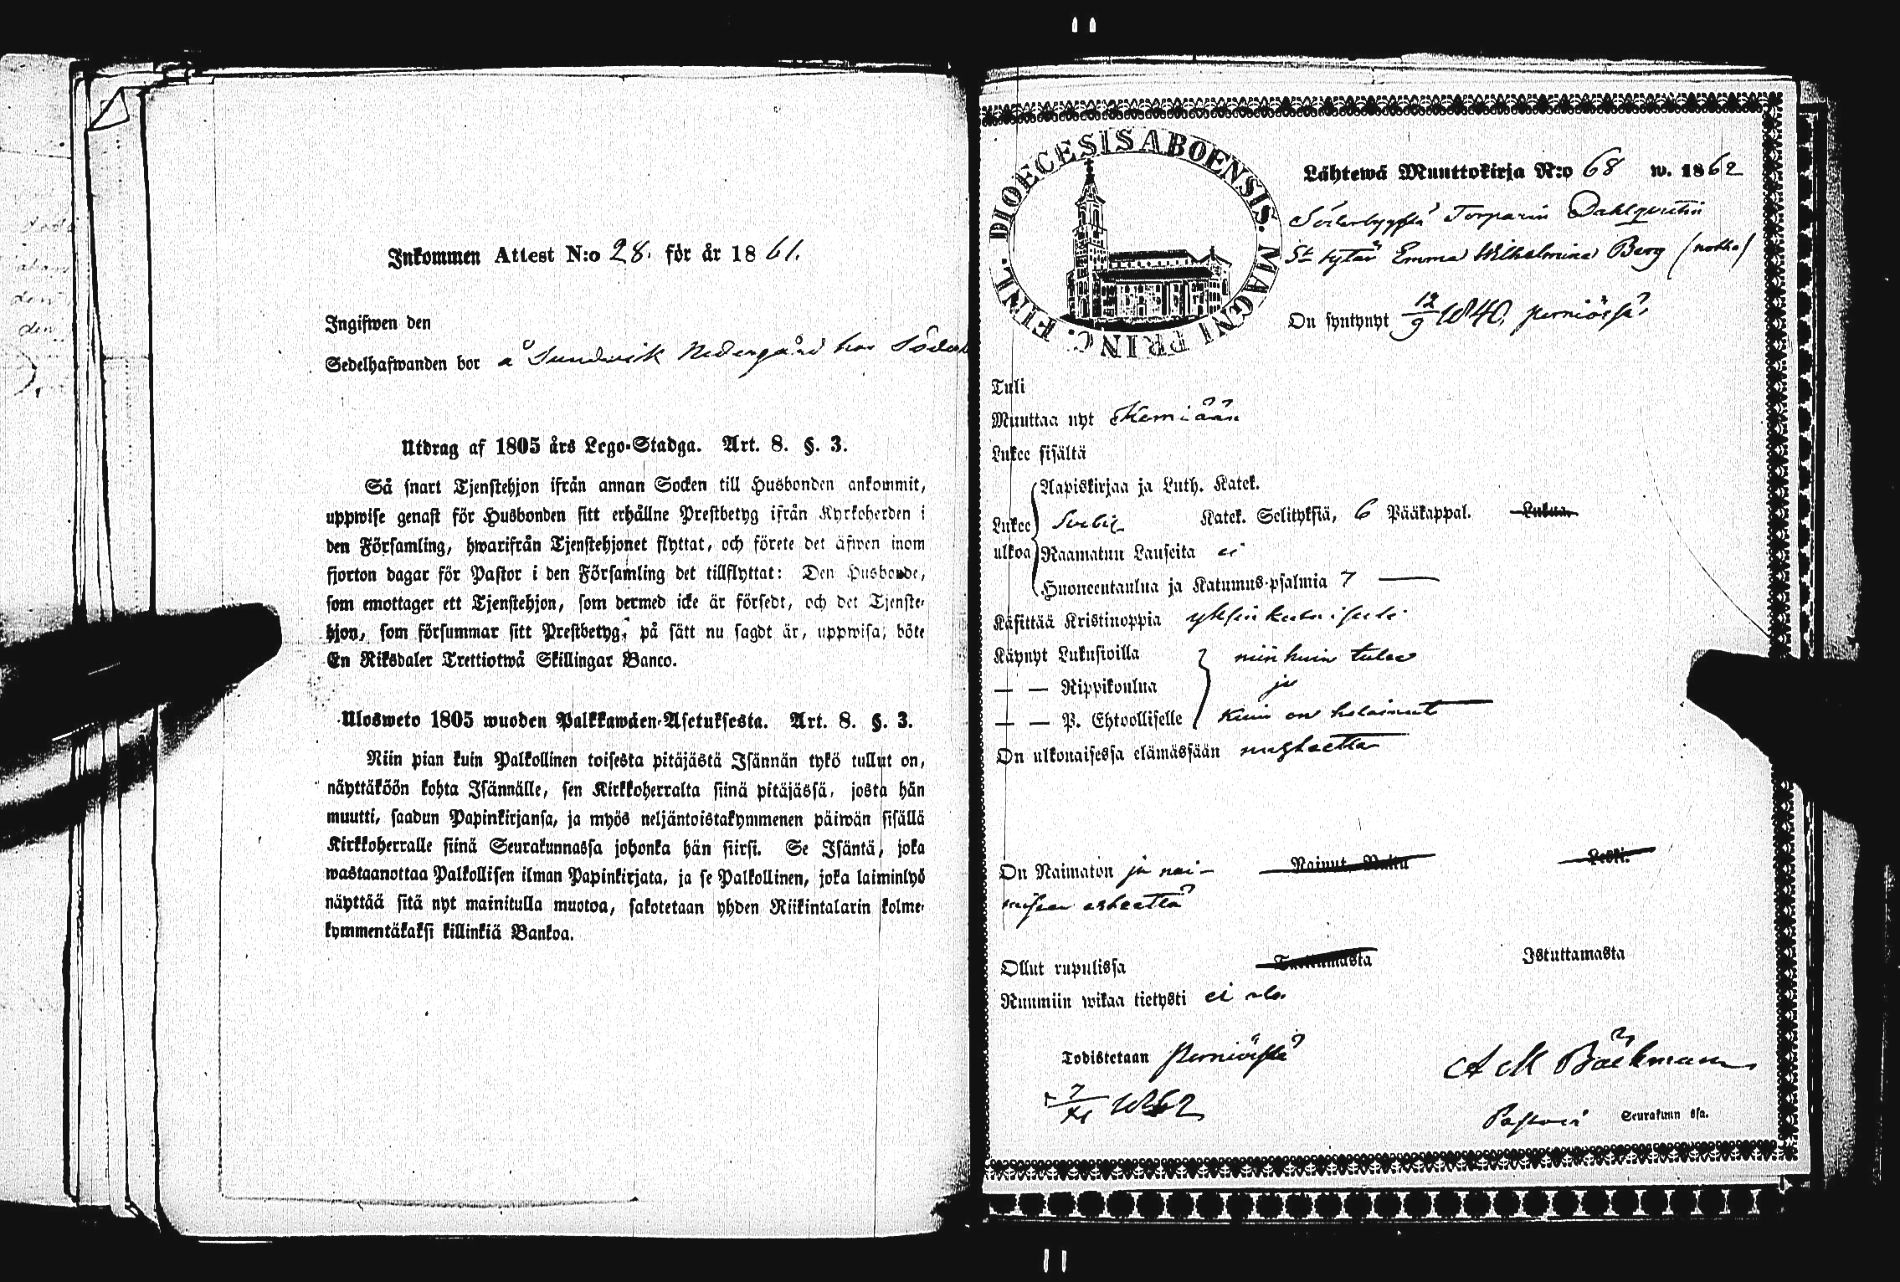 Inkommen Attest N:o 28. för år 1861.
Ingifwen den
Sedelhafwanden bor å Sundwik Nedergård hos Söder
Utdrag af 1805 års Lego-Stadga. Art. 8. §. 3.
Så snart Tjenstehjon ifrån annan Socken till Husbonden ankommit,
uppwise genast för Husbonden sitt erhållne Prestbetyg ifrån Kyrkoherden i
den Församling, hwarifrån Tjenstehjonet flyttat, och förete det äfwen inom
fjorton dagar för Pastor i den Församling det tillflyttat: Den Husbonde,
som emottager ett Tjenstehjon, som dermed icke är försedt, och det Tjenste-
hjon, som försummar sitt Prestbetyg, på sätt nu sagdt är, uppwisa, böte
En Riksdaler Trettiotwå Skillingar Banco.
Ulosweto 1805 wuoden Palkkawäen-Asetuksesta. Art. 8. §. 3.
Niin pian kuin Palkollinen toisesta pitäjästä Isännän tykö tullut on,
näyttäköön kohta Isännälle, sen Kirkkoherralta siinä pitäjässä, josta hän
muutti, saadun Papinkirjansa, ja myös neljäntoistakymmenen päiwän sisällä
Kirkkoherralle siinä Seurakunnassa johonka hän siirsi. Se Isäntä, joka
wastaanottaa Palkollisen ilman Papinkirjata, ja se Palkollinen, joka laiminlyö
näyttää sitä nyt mainitulla muotoa, sakotetaan yhden Riikintalarin kolme-
kymmentäkaksi killinkiä Bankoa.
FINL. DIOECESIS ABOENSIS. MAGNI PRINC.
Lähtewä Muuttokirja N:o 68 w. 1862
Söderbyystä Torparin Dahlqvistin
tytär Emma Wilhelmina Berg
On syntynyt 12/9 1840, Perniössä
Tuli
Muuttaa nyt Kemiöön
Lukee sisältä
Aapiskirjaa ja Luth. Katek.
Lukee Katek. Selityksiä, 6 Pääkappal. Lukua.
ulkoa Raamatun Lauseita ei
Huoneentaulua ja Katumus-psalmia 7
Käsittää Kristinoppia yksinkertaisesti
Käynyt Lukusioilla niinkuin tulee
— — Rippikoulua ja
— — P. Ehtoolliselle kuin on
On ulkonaisessa elämässään nuhteetta
On Naimaton ja nai- Nainut, Leski.
misen esteettä
Ollut rupulissa Istuttamasta
Ruumiin wikaa tietysti ei ole
Todistetaan Perniöstä A M Bäckman
1862 Pastori Seurakunn ssa.